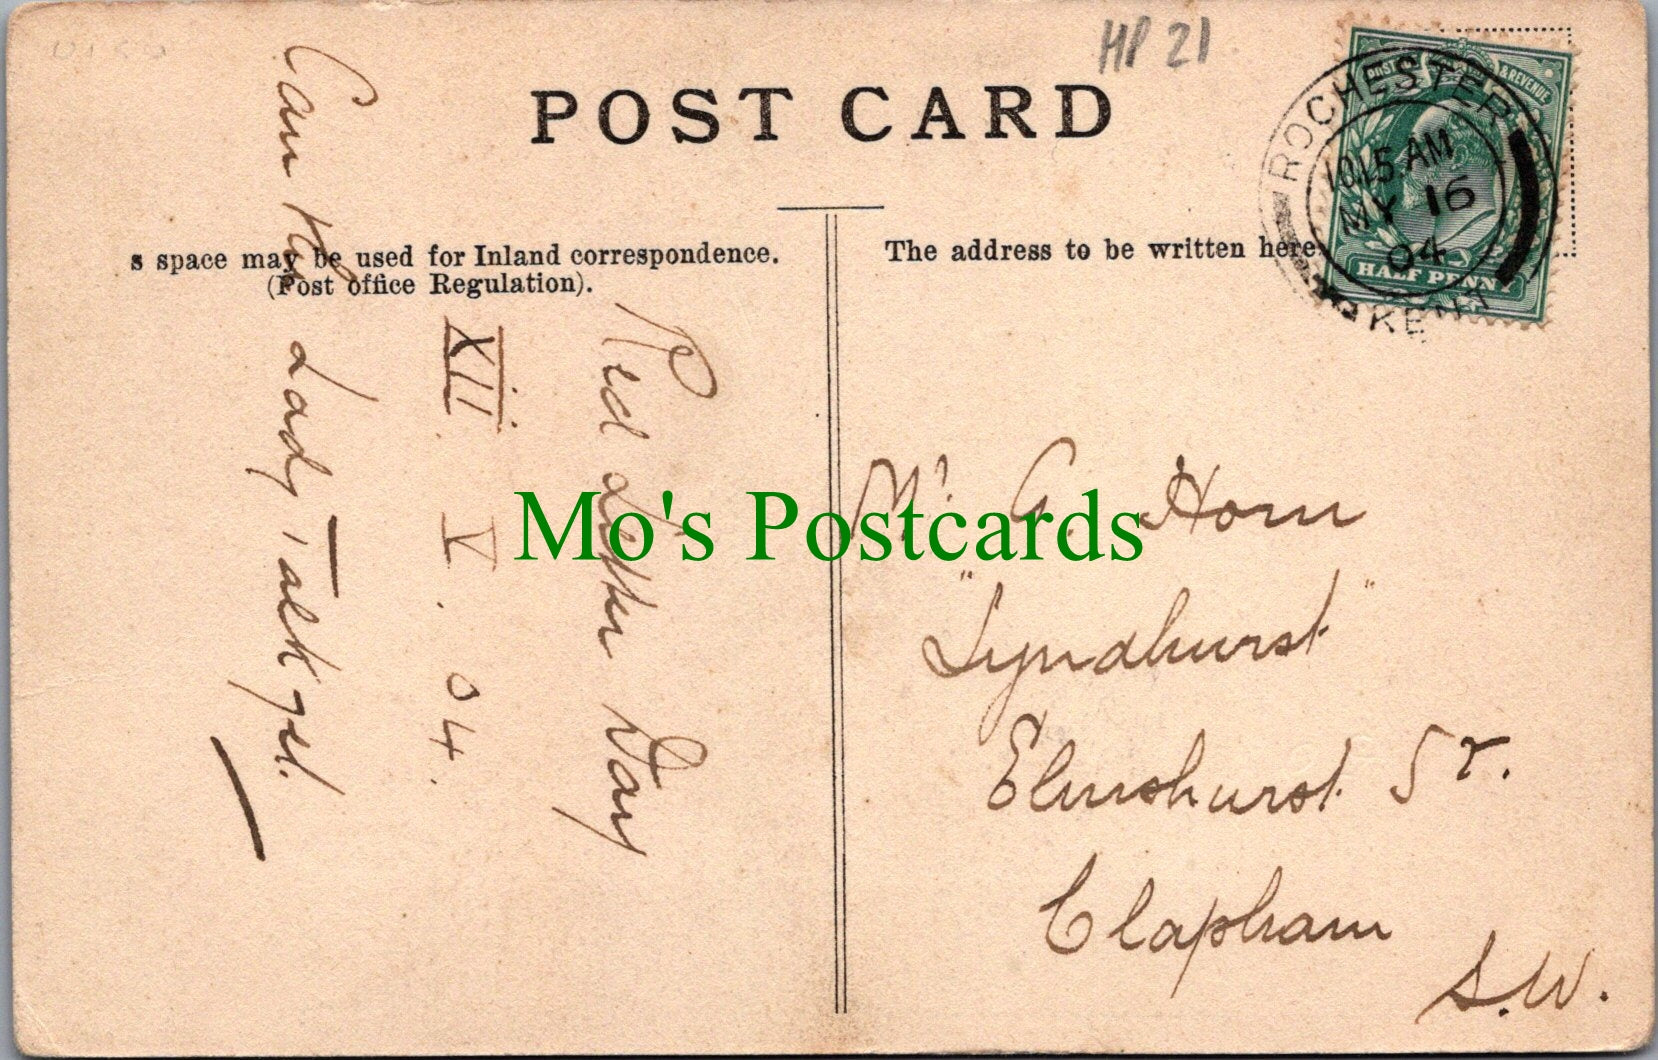 HP 21
POST CARD
s space may be used for Inland correspondence.
(Post office Regulation).
The address to be written here
POST & REVENUE
HALF PENNY
ROCHESTER
10.15 AM
MY 16
04
KENT
Red Letter Day
XII. V. 04.
Can the Lady Talk yet.
Mr. G. Horn
"Lyndhurst"
Elmshurst St.
Clapham
S.W.
Mo's Postcards